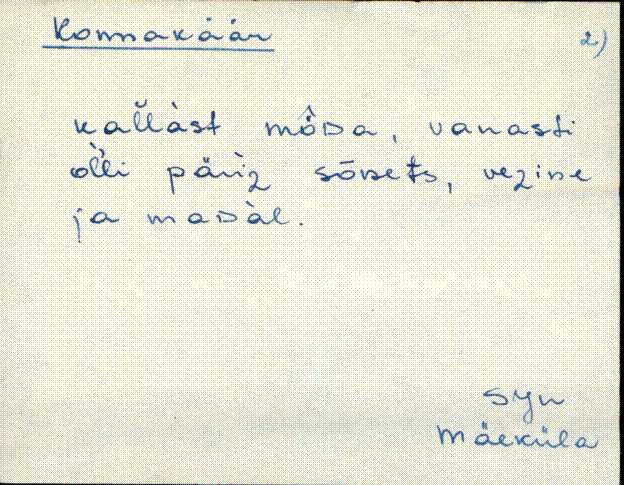 Konnakäär
2)
kallàst mô̬ᴅa, vanasti
òlli päriz sō̬ʙets, vezine
ja maᴅàl.
Syn
Mäeküla